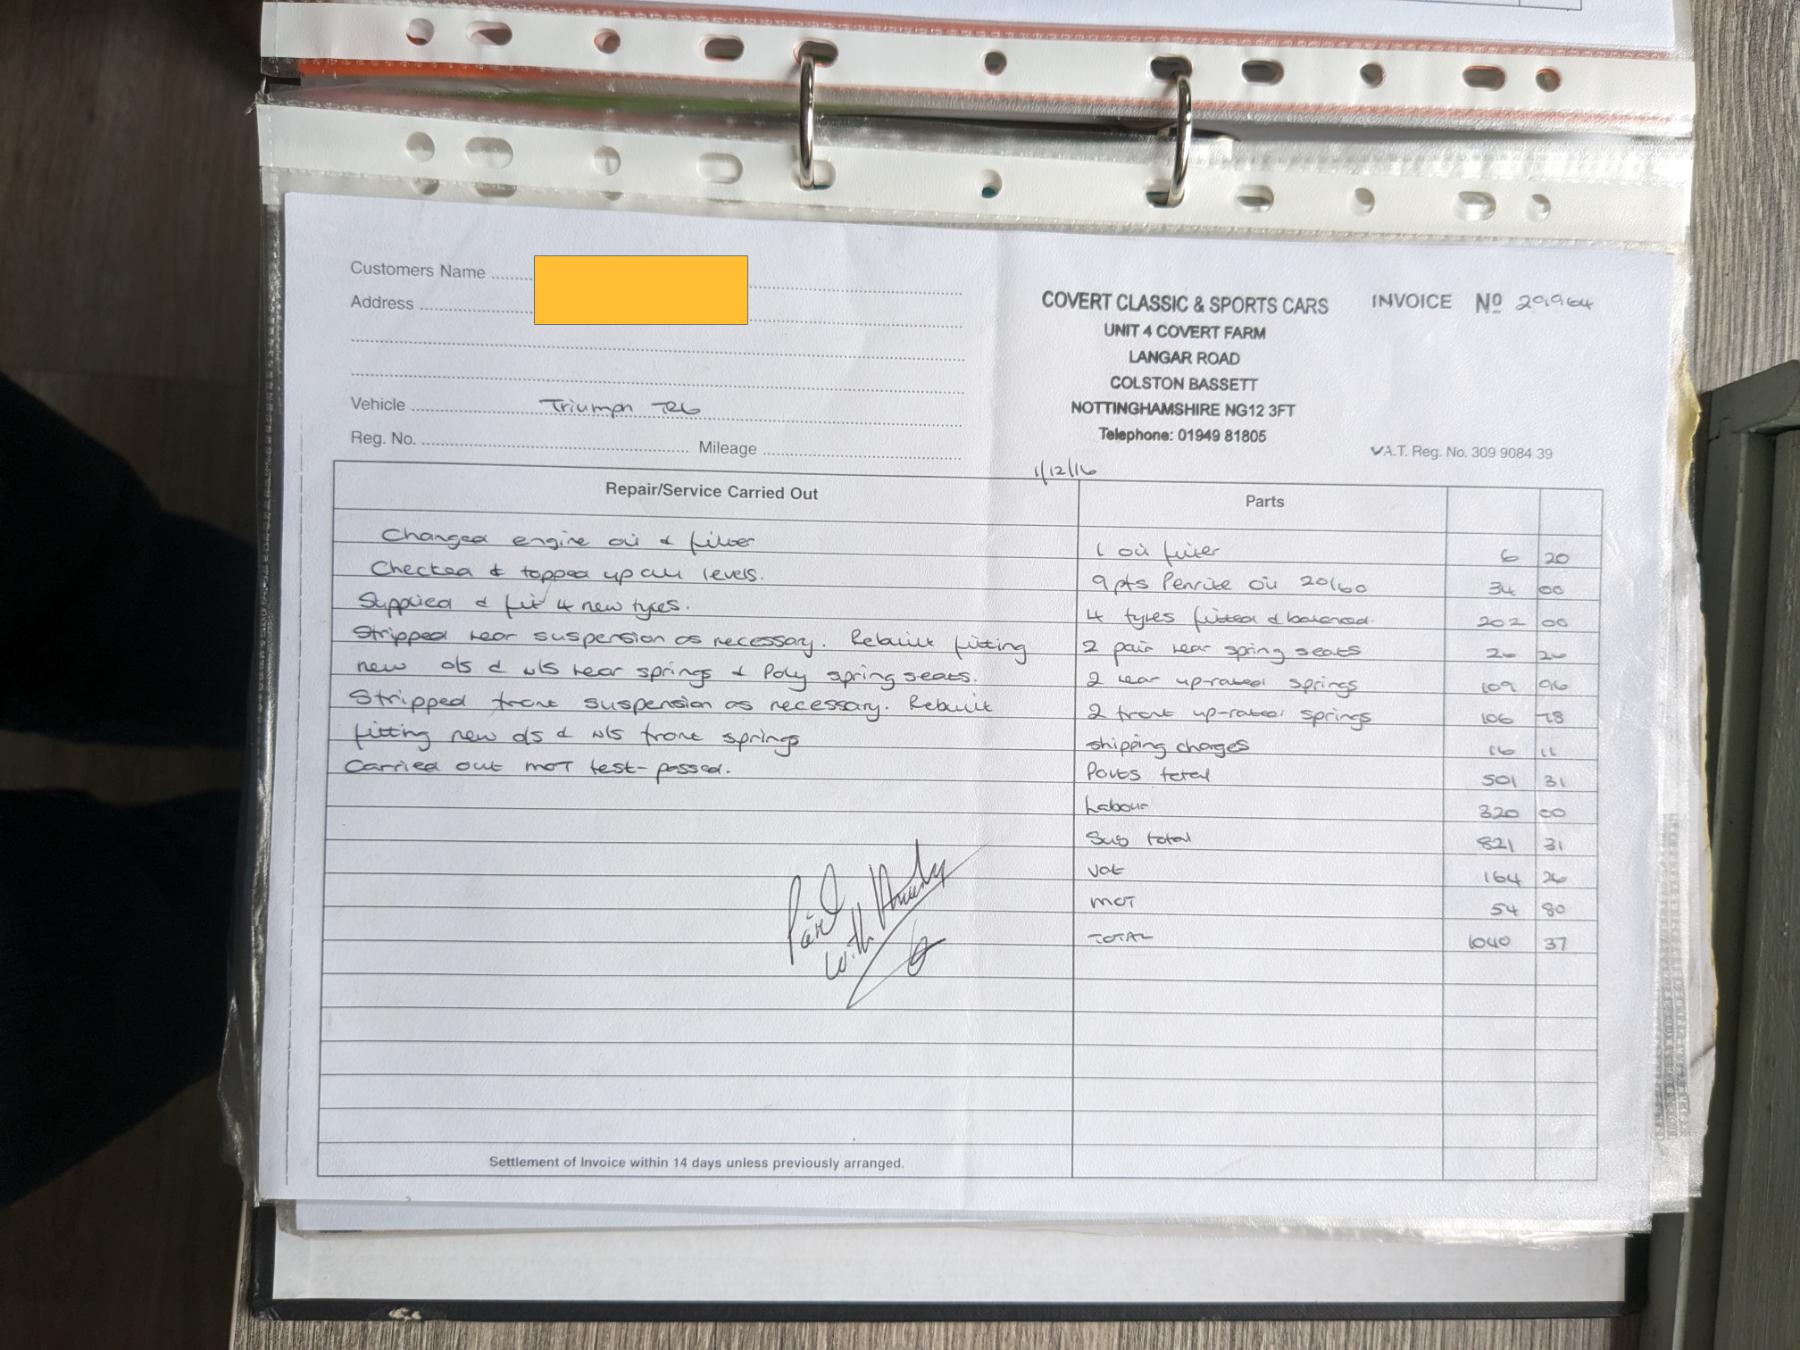 Customers Name
Address
COVERT CLASSIC & SPORTS CARS
UNIT 4 COVERT FARM
LANGAR ROAD
COLSTON BASSETT
NOTTINGHAMSHIRE NG12 3FT
Telephone: 01949 81805
INVOICE Nº
V.A.T. Reg. No. 309 9084 39
Vehicle Triumph TR6
Reg. No. Mileage
1/12/16
Repair/Service Carried Out
Changed engine oil & filter
Checked & topped up all levels.
Supplied & fit 4 new tyres.
Stripped rear suspension as necessary. Rebuilt fitting
new o/s & n/s rear springs & Poly spring seats.
Stripped front suspension as necessary. Rebuilt
fitting new o/s & n/s front springs
Carried out MOT test-passed.
Paid
with
Parts
1 oil filter 6 20
9 pts Penrite oil 20/60 34 00
4 tyres fitted & balanced. 202 00
2 pair rear spring seats 26 26
2 rear up-rated springs 109 96
2 front up-rated springs 106 78
shipping charges 16 11
Parts total 501 31
Labour 320 00
Sub total 821 31
Vat 164 26
MOT 54 80
TOTAL 1040 37
Settlement of Invoice within 14 days unless previously arranged.